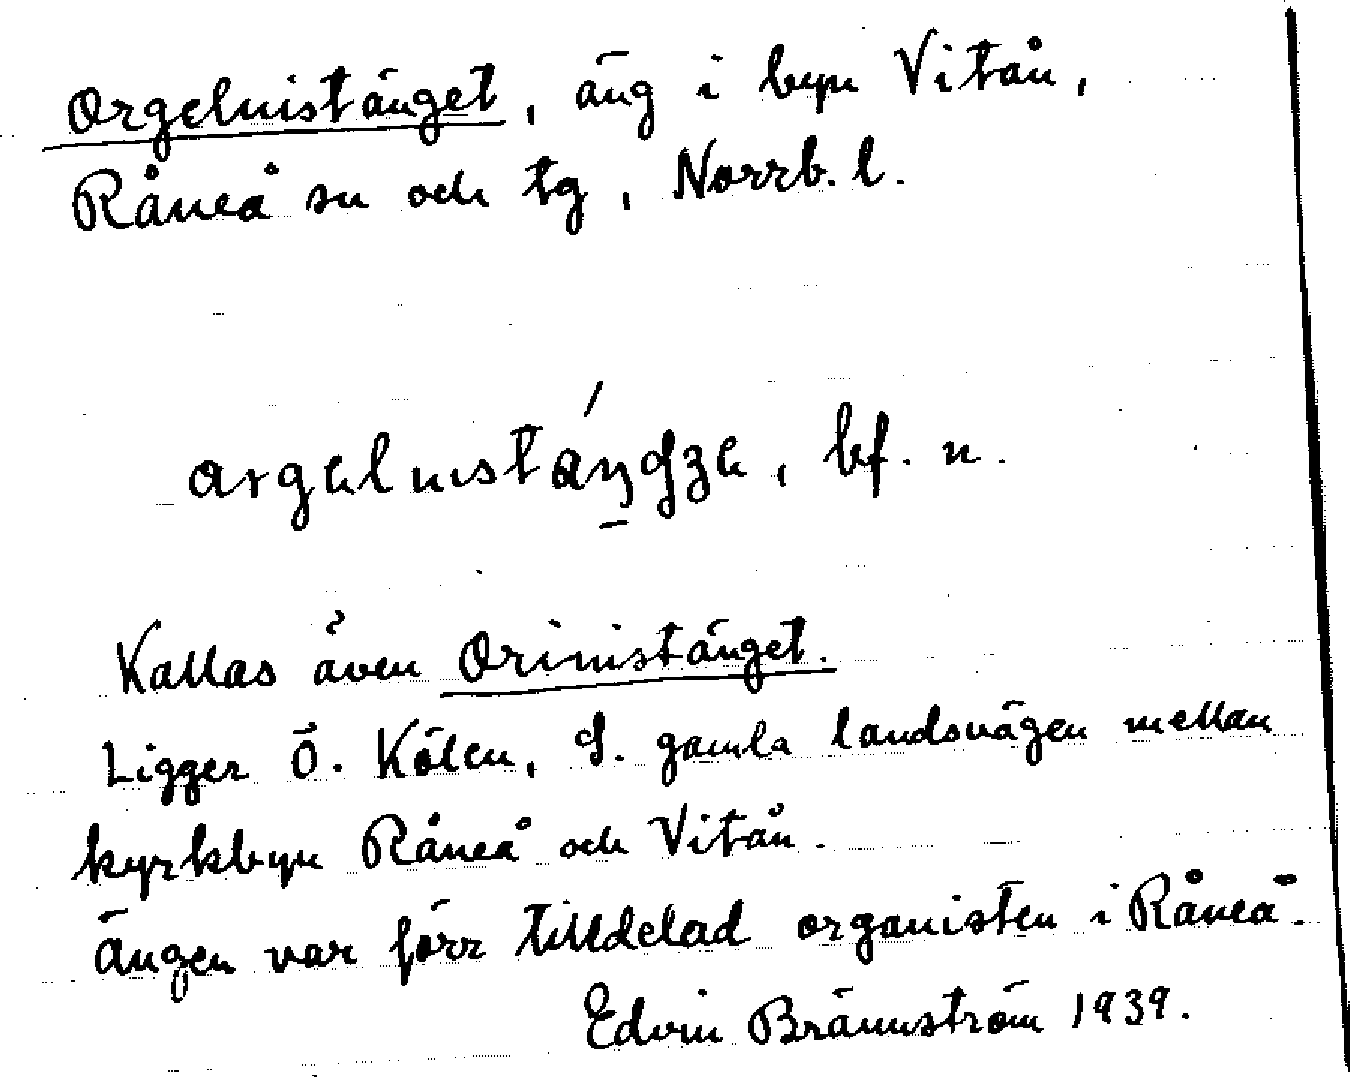 Orgelnistänget, äng i byn Vitån,
Råneå sn och tg, Norrb. l.
bf. n.
Kallas även Orinistänget.
Ligger Ö. Kölen, S. gamla landsvägen mellan
kyrkbyn Råneå och Vitån.
Ängen var förr tilldelad organisten i Råneå.
Edvin Brännström 1939.